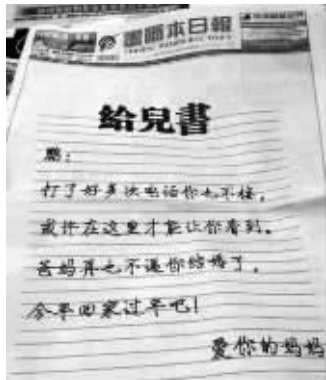 給兒書
鵬：
打了好多次电话你也不接，
或许在这里才能让你看到。
爸妈再也不逼你结婚了，
今年回家过年吧！
爱你的妈妈